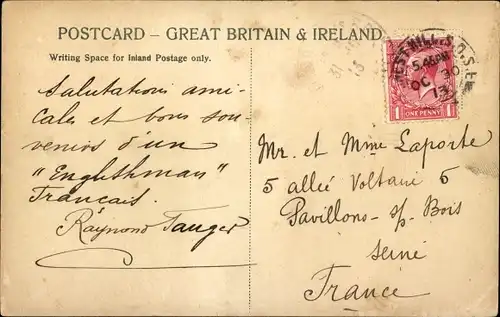 POSTCARD — GREAT BRITAIN & IRELAND.
Writing Space for Inland Postage only.
Salutations ami-
cales et bons sou-
venirs d'un
"Englishman"
Francais.
Raymond
FOREST HILL. S.O. S.E.
5.45PM
OC 30
13
1 ONE PENNY 1
Mr. et Mme Laporte
5 allée Voltaire 6
Pavillons-s/-Bois
Seine
France